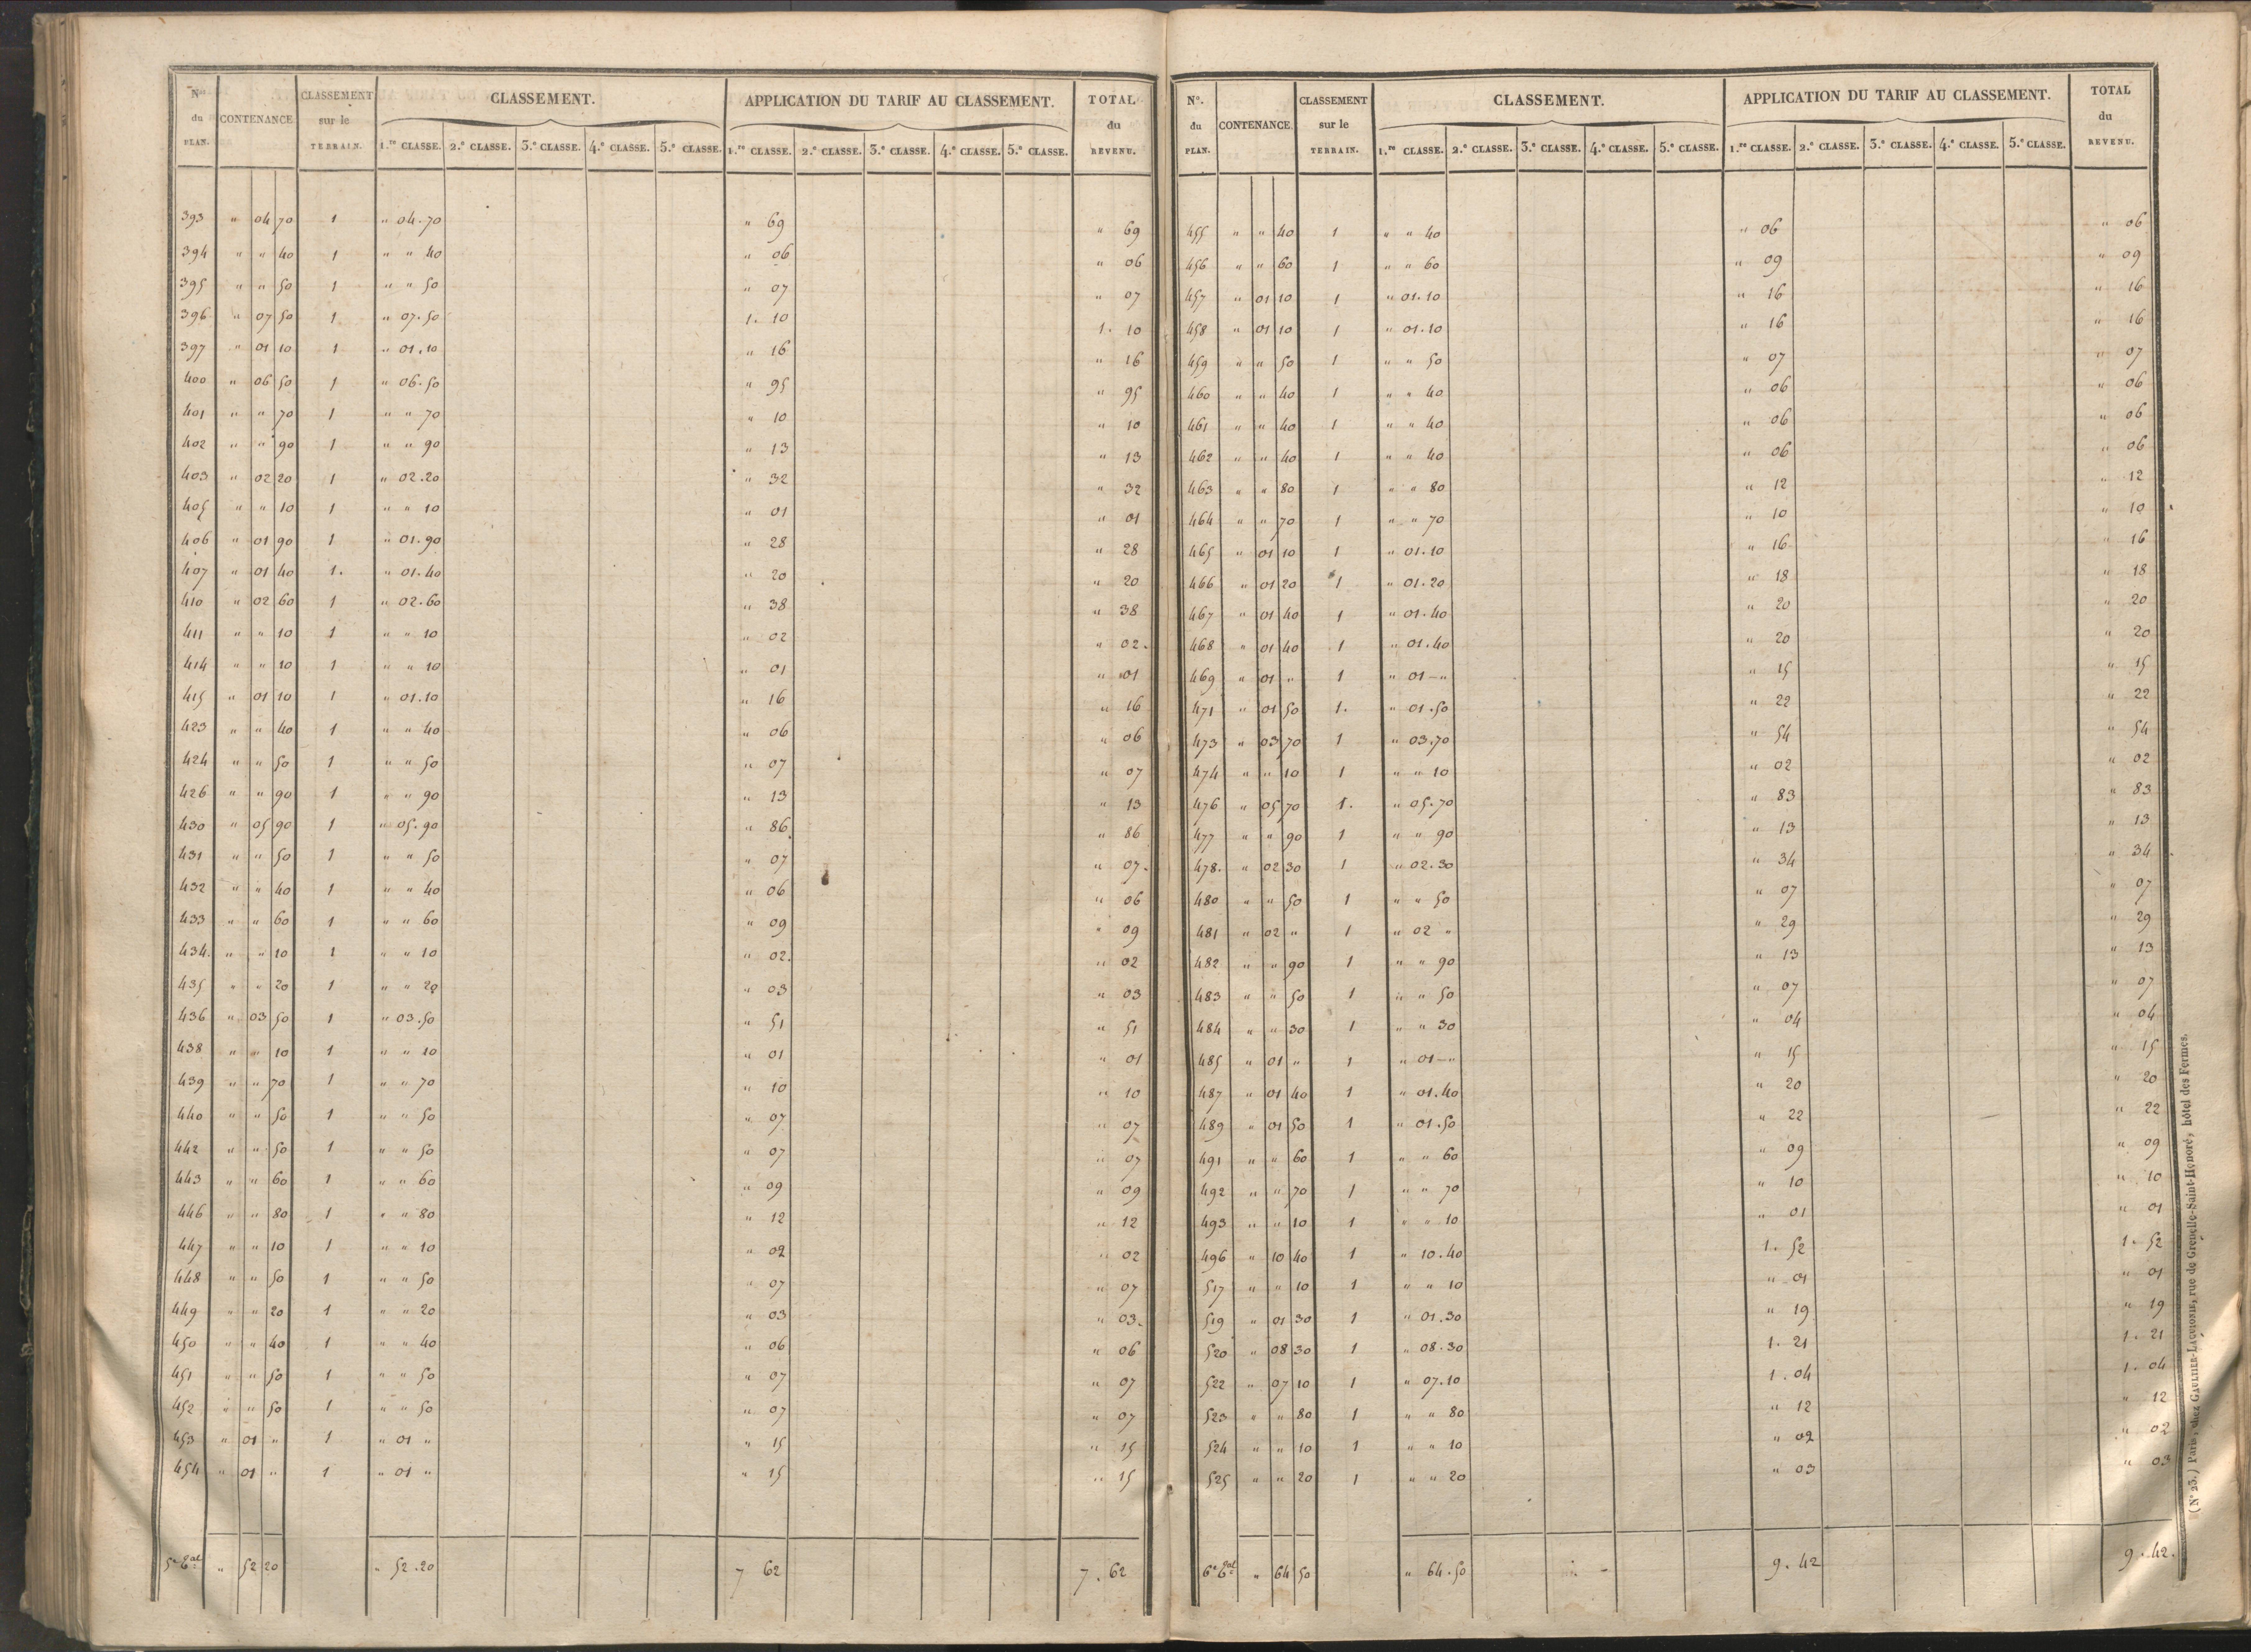 N° du PLAN. CONTENANCE CLASSEMENT sur le TERRAIN. CLASSEMENT. APPLICATION DU TARIF AU CLASSEMENT. TOTAL du REVENU.
1.re CLASSE. 2.e CLASSE. 3.e CLASSE. 4.e CLASSE. 5.e CLASSE. 1.re CLASSE. 2.e CLASSE. 3.e CLASSE. 4.e CLASSE. 5.e CLASSE.
393 " 04 70 1 " 04.70 " 69 " 69
394 " " 40 1 " " 40 " 06 " 06
395 " " 50 1 " " 50 " 07 " 07
396 " 07 50 1 " 07.50 1. 10 1. 10
397 " 01 10 1 " 01.10 " 16 " 16
400 " 06 50 1 " 06.50 " 95 " 95
401 " " 70 1 " " 70 " 10 " 10
402 " " 90 1 " " 90 " 13 " 13
403 " 02 20 1 " 02.20 " 32 " 32
405 " " 10 1 " " 10 " 01 " 01
406 " 01 90 1 " 01.90 " 28 " 28
407 " 01 40 1. " 01.40 " 20 " 20
410 " 02 60 1 " 02.60 " 38 " 38
411 " " 10 1 " " 10 " 02 " 02.
414 " " 10 1 " " 10 " 01 " 01
415 " 01 10 1 " 01.10 " 16 " 16
423 " " 40 1 " " 40 " 06 " 06
424 " " 50 1 " " 50 " 07 " 07
426 " " 90 1 " " 90 " 13 " 13
430 " 05 90 1 " 05.90 " 86 " 86
431 " " 50 1 " " 50 " 07 " 07.
432 " " 40 1 " " 40 " 06 " 06
433 " " 60 1 " " 60 " 09 " 09
434. " " 10 1 " " 10 " 02. " 02
435 " " 20 1 " " 20 " 03 " 03
436 " 03 50 1 " 03.50 " 51 " 51
438 " " 10 1 " " 10 " 01 " 01
439 " " 70 1 " " 70 " 10 " 10
440 " " 50 1 " " 50 " 07 " 07
442 " " 50 1 " " 50 " 07 " 07
443 " " 60 1 " " 60 " 09 " 09
446 " " 80 1 " " 80 " 12 " 12
447 " " 10 1 " " 10 " 02 " 02
448 " " 50 1 " " 50 " 07 " 07
449 " " 20 1 " " 20 " 03 " 03.
450 " " 40 1 " " 40 " 06 " 06
451 " " 50 1 " " 50 " 07 " 07
452 " " 50 1 " " 50 " 07 " 07
453 " 01 " 1 " 01 " " 15 " 15
454 " 01 " 1 " 01 " " 15 " 15
" 52 20 " 52.20 7 62 7. 62
N°. du PLAN. CONTENANCE. CLASSEMENT sur le TERRAIN. CLASSEMENT. APPLICATION DU TARIF AU CLASSEMENT. TOTAL du REVENU.
1.re CLASSE. 2.e CLASSE. 3.e CLASSE. 4.e CLASSE. 5.e CLASSE. 1.re CLASSE. 2.e CLASSE. 3.e CLASSE. 4.e CLASSE. 5.e CLASSE.
455 " " 40 1 " " 40 " 06 " 06
456 " " 60 1 " " 60 " 09 " 09
457 " 01 10 1 " 01.10 " 16 " 16
458 " 01 10 1 " 01.10 " 16 " 16
459 " " 50 1 " " 50 " 07 " 07
460 " " 40 1 " " 40 " 06 " 06
461 " " 40 1 " " 40 " 06 " 06
462 " " 40 1 " " 40 " 06 " 06
463 " " 80 1 " " 80 " 12 " 12
464 " " 70 1 " " 70 " 10 " 10
465 " 01 10 1 " 01.10 " 16 " 16
466 " 01 20 1 " 01.20 " 18 " 18
467 " 01 40 1 " 01.40 " 20 " 20
468 " 01 40 1 " 01.40 " 20 " 20
469 " 01 " 1 " 01-" " 15 " 15
471 " 01 50 1. " 01.50 " 22 " 22
473 " 03 70 1 " 03.70 " 54 " 54
474 " " 10 1 " " 10 " 02 " 02
476 " 05 70 1. " 05.70 " 83 " 83
477 " " 90 1 " " 90 " 13 " 13
478. " 02 30 1 " 02.30 " 34 " 34
480 " " 50 1 " " 50 " 07 " 07
481 " 02 " 1 " 02 " " 29 " 29
482 " " 90 1 " " 90 " 13 " 13
483 " " 50 1 " " 50 " 07 " 07
484 " " 30 1 " " 30 " 04 " 04
485 " 01 " 1 " 01-" " 15 " 15
487 " 01 40 1 " 01.40 " 20 " 20
489 " 01 50 1 " 01.50 " 22 " 22
491 " " 60 1 " " 60 " 09 " 09
492 " " 70 1 " " 70 " 10 " 10
493 " " 10 1 " " 10 " 01 " 01
496 " 10 40 1 " 10.40 1. 52 1. 52
517 " " 10 1 " " 10 " 01 " 01
519 " 01 30 1 " 01.30 " 19 " 19
520 " 08 30 1 " 08.30 1. 21 1. 21
522 " 07 10 1 " 07.10 1. 04 1. 04
523 " " 80 1 " " 80 " 12 " 12
524 " " 10 1 " " 10 " 02 " 02
525 " " 20 1 " " 20 " 03 " 03
" 64 50 " 64.50 9. 42 9. 42.
(N° 23.) Paris, chez GAULTIER-LAGUIONIE, rue de Grenelle-Saint-Honoré, hôtel des Fermes.